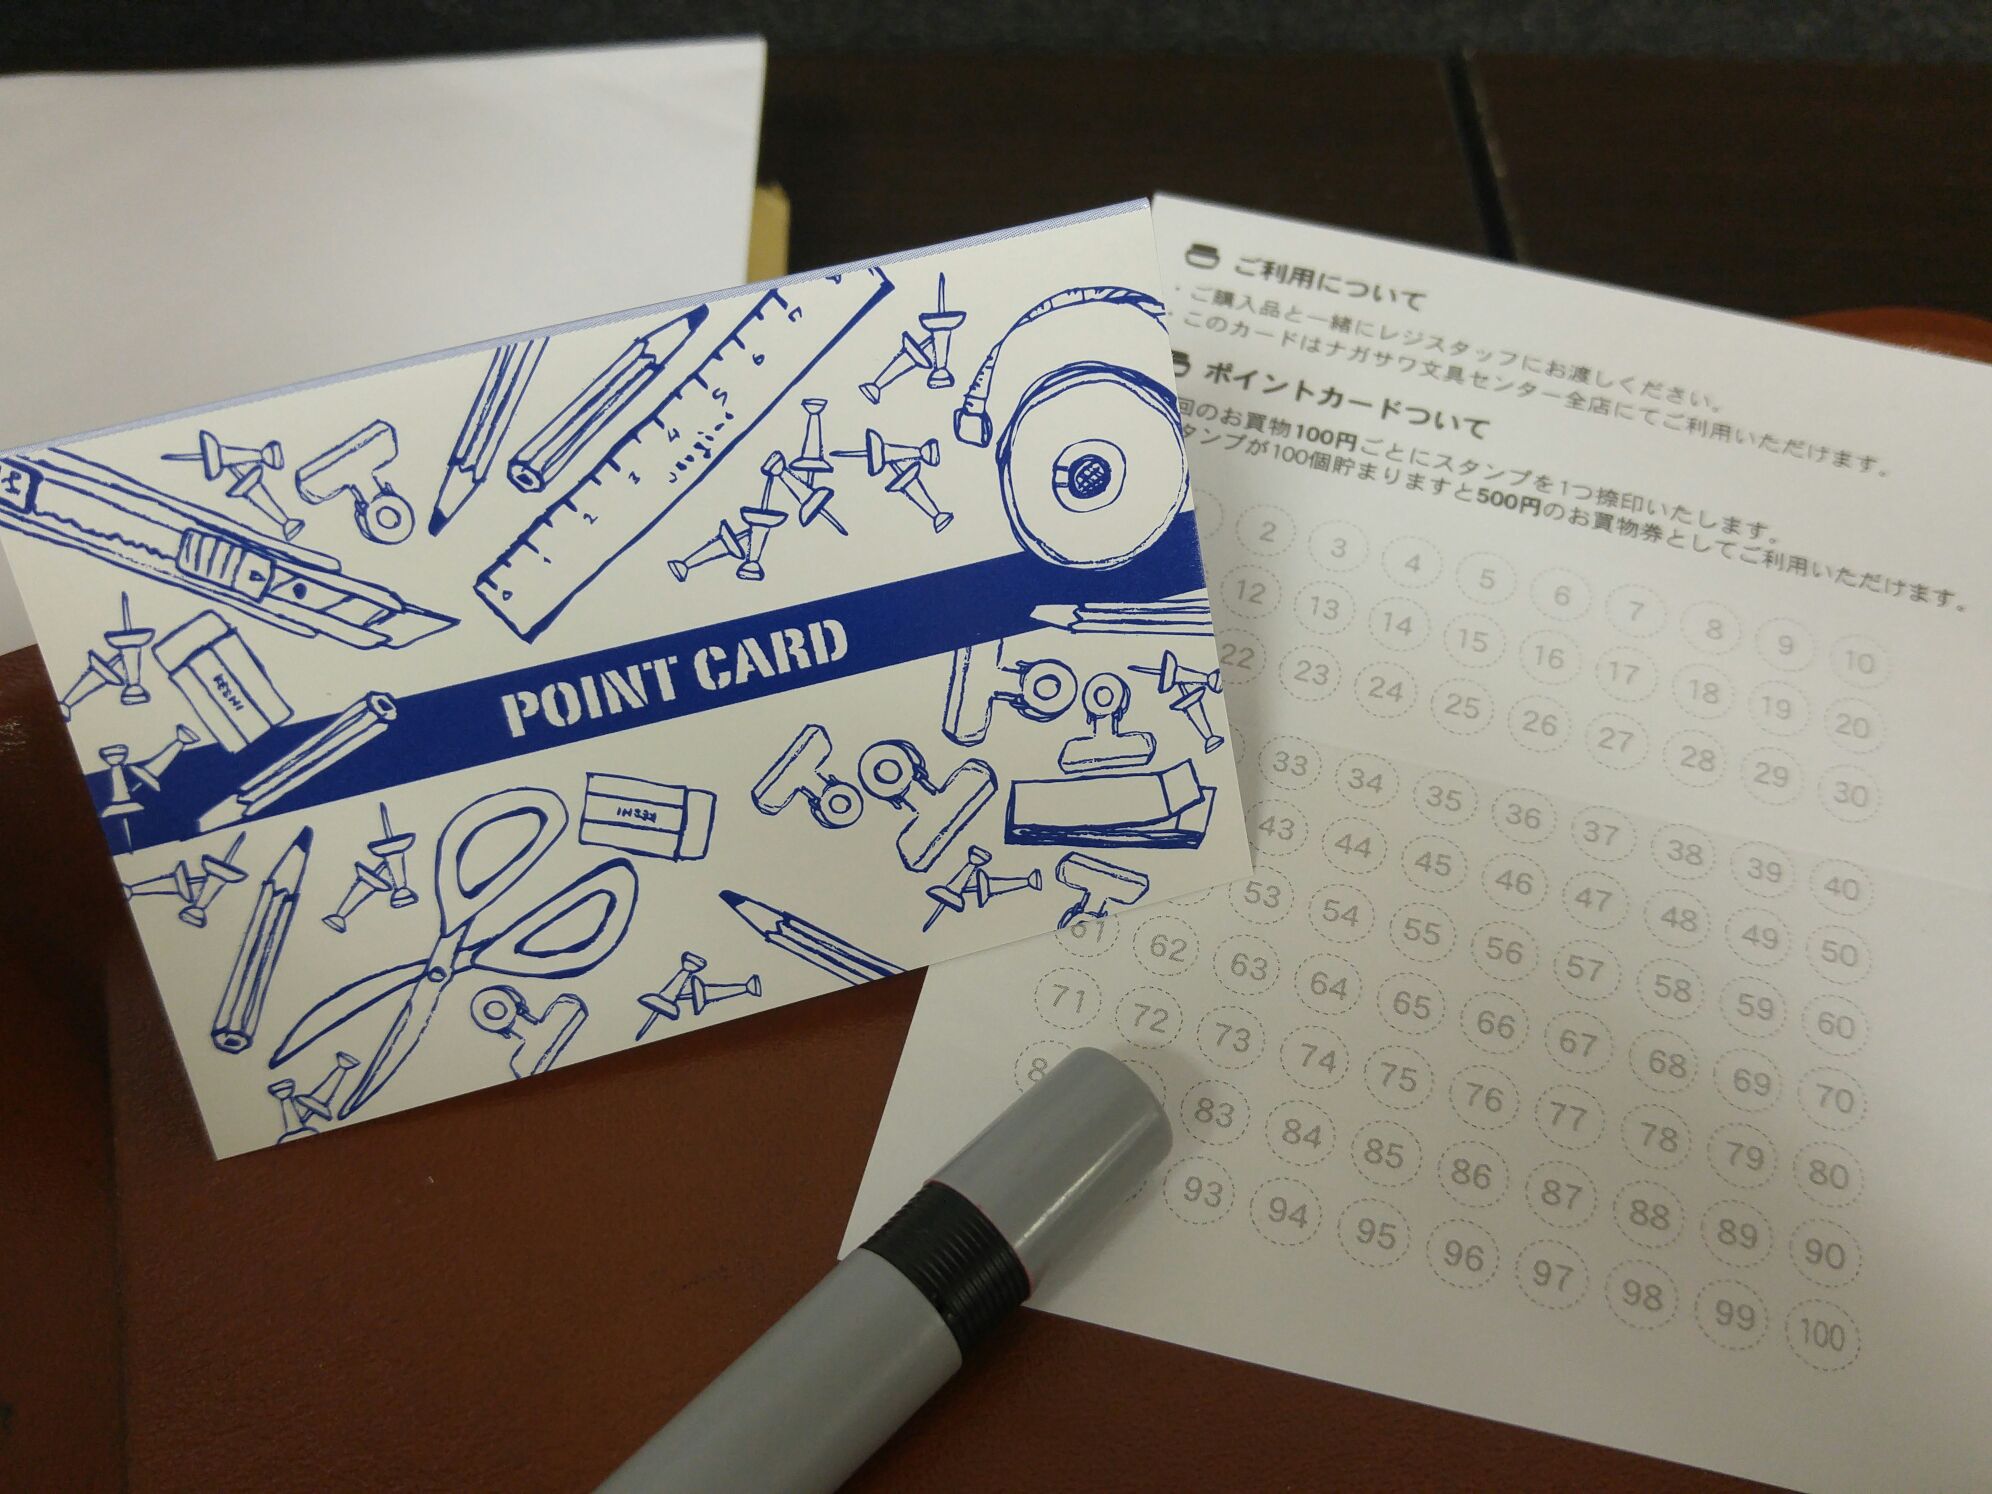 POINT CARD
0 2 3 4 5 6
KESHI
KESHI
ご利用について
・ご購入品と一緒にレジスタッフにお渡しください。
・このカードはナガサワ文具センター全店にてご利用いただけます。
ポイントカードついて
回のお買物100円ごとにスタンプを1つ捺印いたします。
タンプが100個貯まりますと500円のお買物券としてご利用いただけます。
2 3 4 5 6 7 8 9 10
12 13 14 15 16 17 18 19 20
22 23 24 25 26 27 28 29 30
33 34 35 36 37 38 39 40
43 44 45 46 47 48 49 50
53 54 55 56 57 58 59 60
61 62 63 64 65 66 67 68 69 70
71 72 73 74 75 76 77 78 79 80
8 83 84 85 86 87 88 89 90
93 94 95 96 97 98 99 100